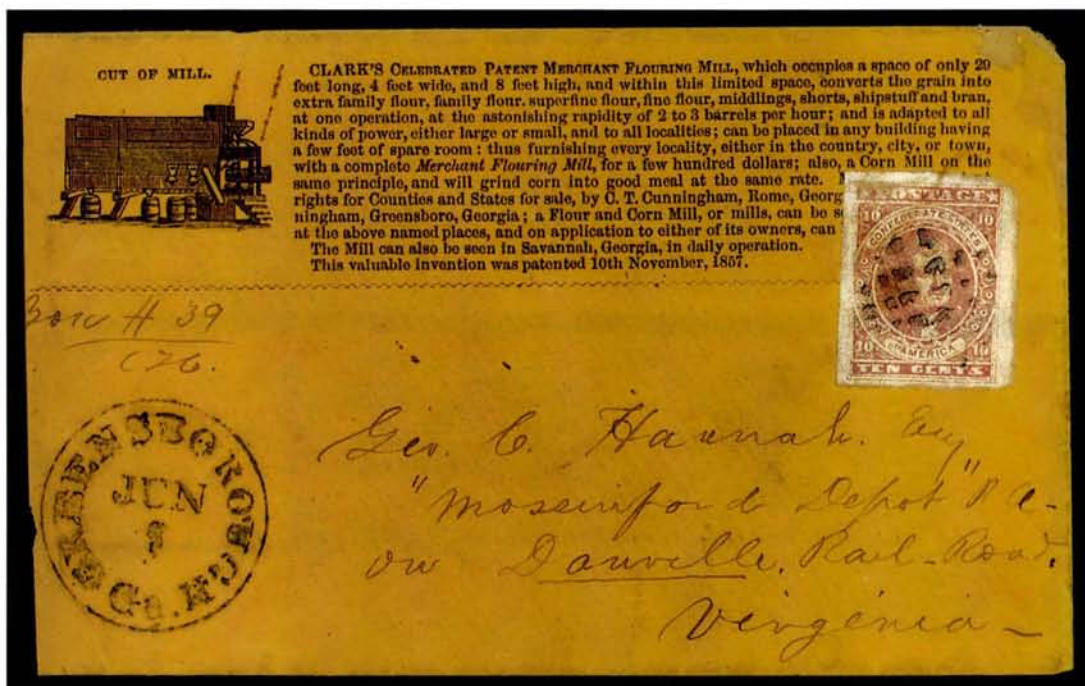 CUT OF MILL.
CLARK'S CELEBRATED PATENT MERCHANT FLOURING MILL, which occupies a space of only 20
feet long, 4 feet wide, and 8 feet high, and within this limited space, converts the grain into
extra family flour, family flour. superfine flour, fine flour, middlings, shorts, shipstuff and bran,
at one operation, at the astonishing rapidity of 2 to 3 barrels per hour; and is adapted to all
kinds of power, either large or small, and to all localities; can be placed in any building having
a few feet of spare room: thus furnishing every locality, either in the country, city, or town,
with a complete Merchant Flouring Mill, for a few hundred dollars; also, a Corn Mill on the
same principle, and will grind corn into good meal at the same rate.
rights for Counties and States for sale, by C. T. Cunningham, Rome, Georg
ningham, Greensboro, Georgia; a Flour and Corn Mill, or mills, can be s
at the above named places, and on application to either of its owners, can
The Mill can also be seen in Savannah, Georgia, in daily operation.
This valuable invention was patented 10th November, 1857.
POSTAGE
10 10
CONFEDERATE STATES
OF AMERICA
10 10
TEN CENTS
# 39
GREENSBOROUGH Ga.
JUN
Geo. C. Hannah. Esq
"Mossingford Depot"
on Danville. Rail-Road.
Virginia-